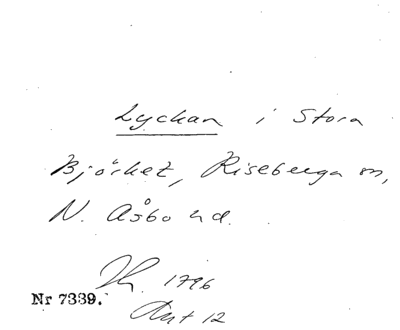 Lyckan i Stora
Björket, Riseberga sn,
N. Åsbo hd.
1796
Nr 7339.
Akt 12